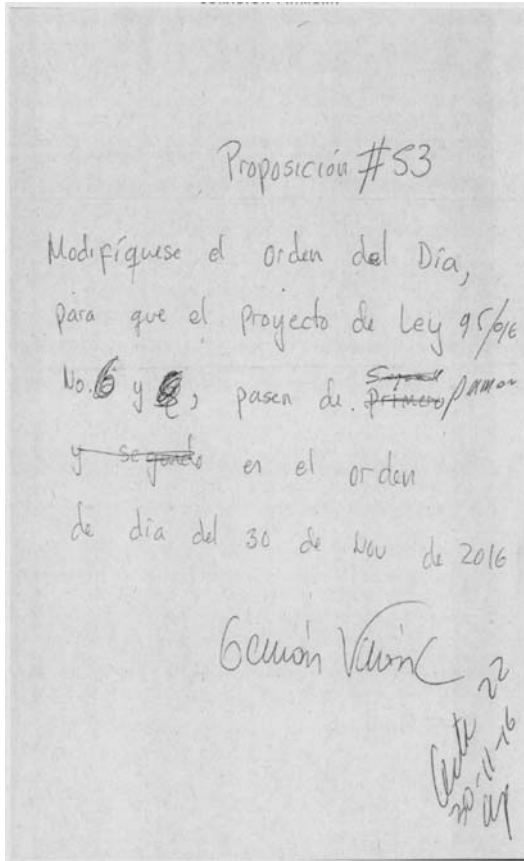 Proposición #53
Modifíquese el orden del Día,
para que el proyecto de Ley 95/016
No. 6 y 8, pasen de primero
y segundo en el orden
de dia del 30 de Nov de 2016
Germán Varón C
Acta 22
30-11-16